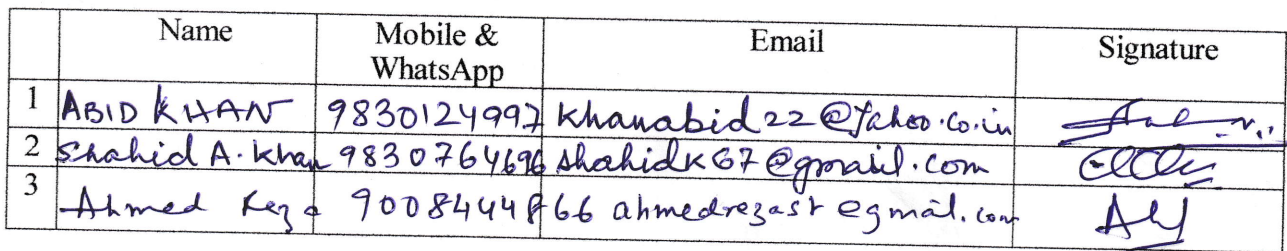 Name Mobile & WhatsApp Email Signature
1 ABID KHAN 9830124997 khanabid22@Yahoo.co.in
2 Shahid A. Khan 9830764696 shahidk67@gmail.com
3 Ahmed Reza 9008444866 ahmedrezast@gmail.com